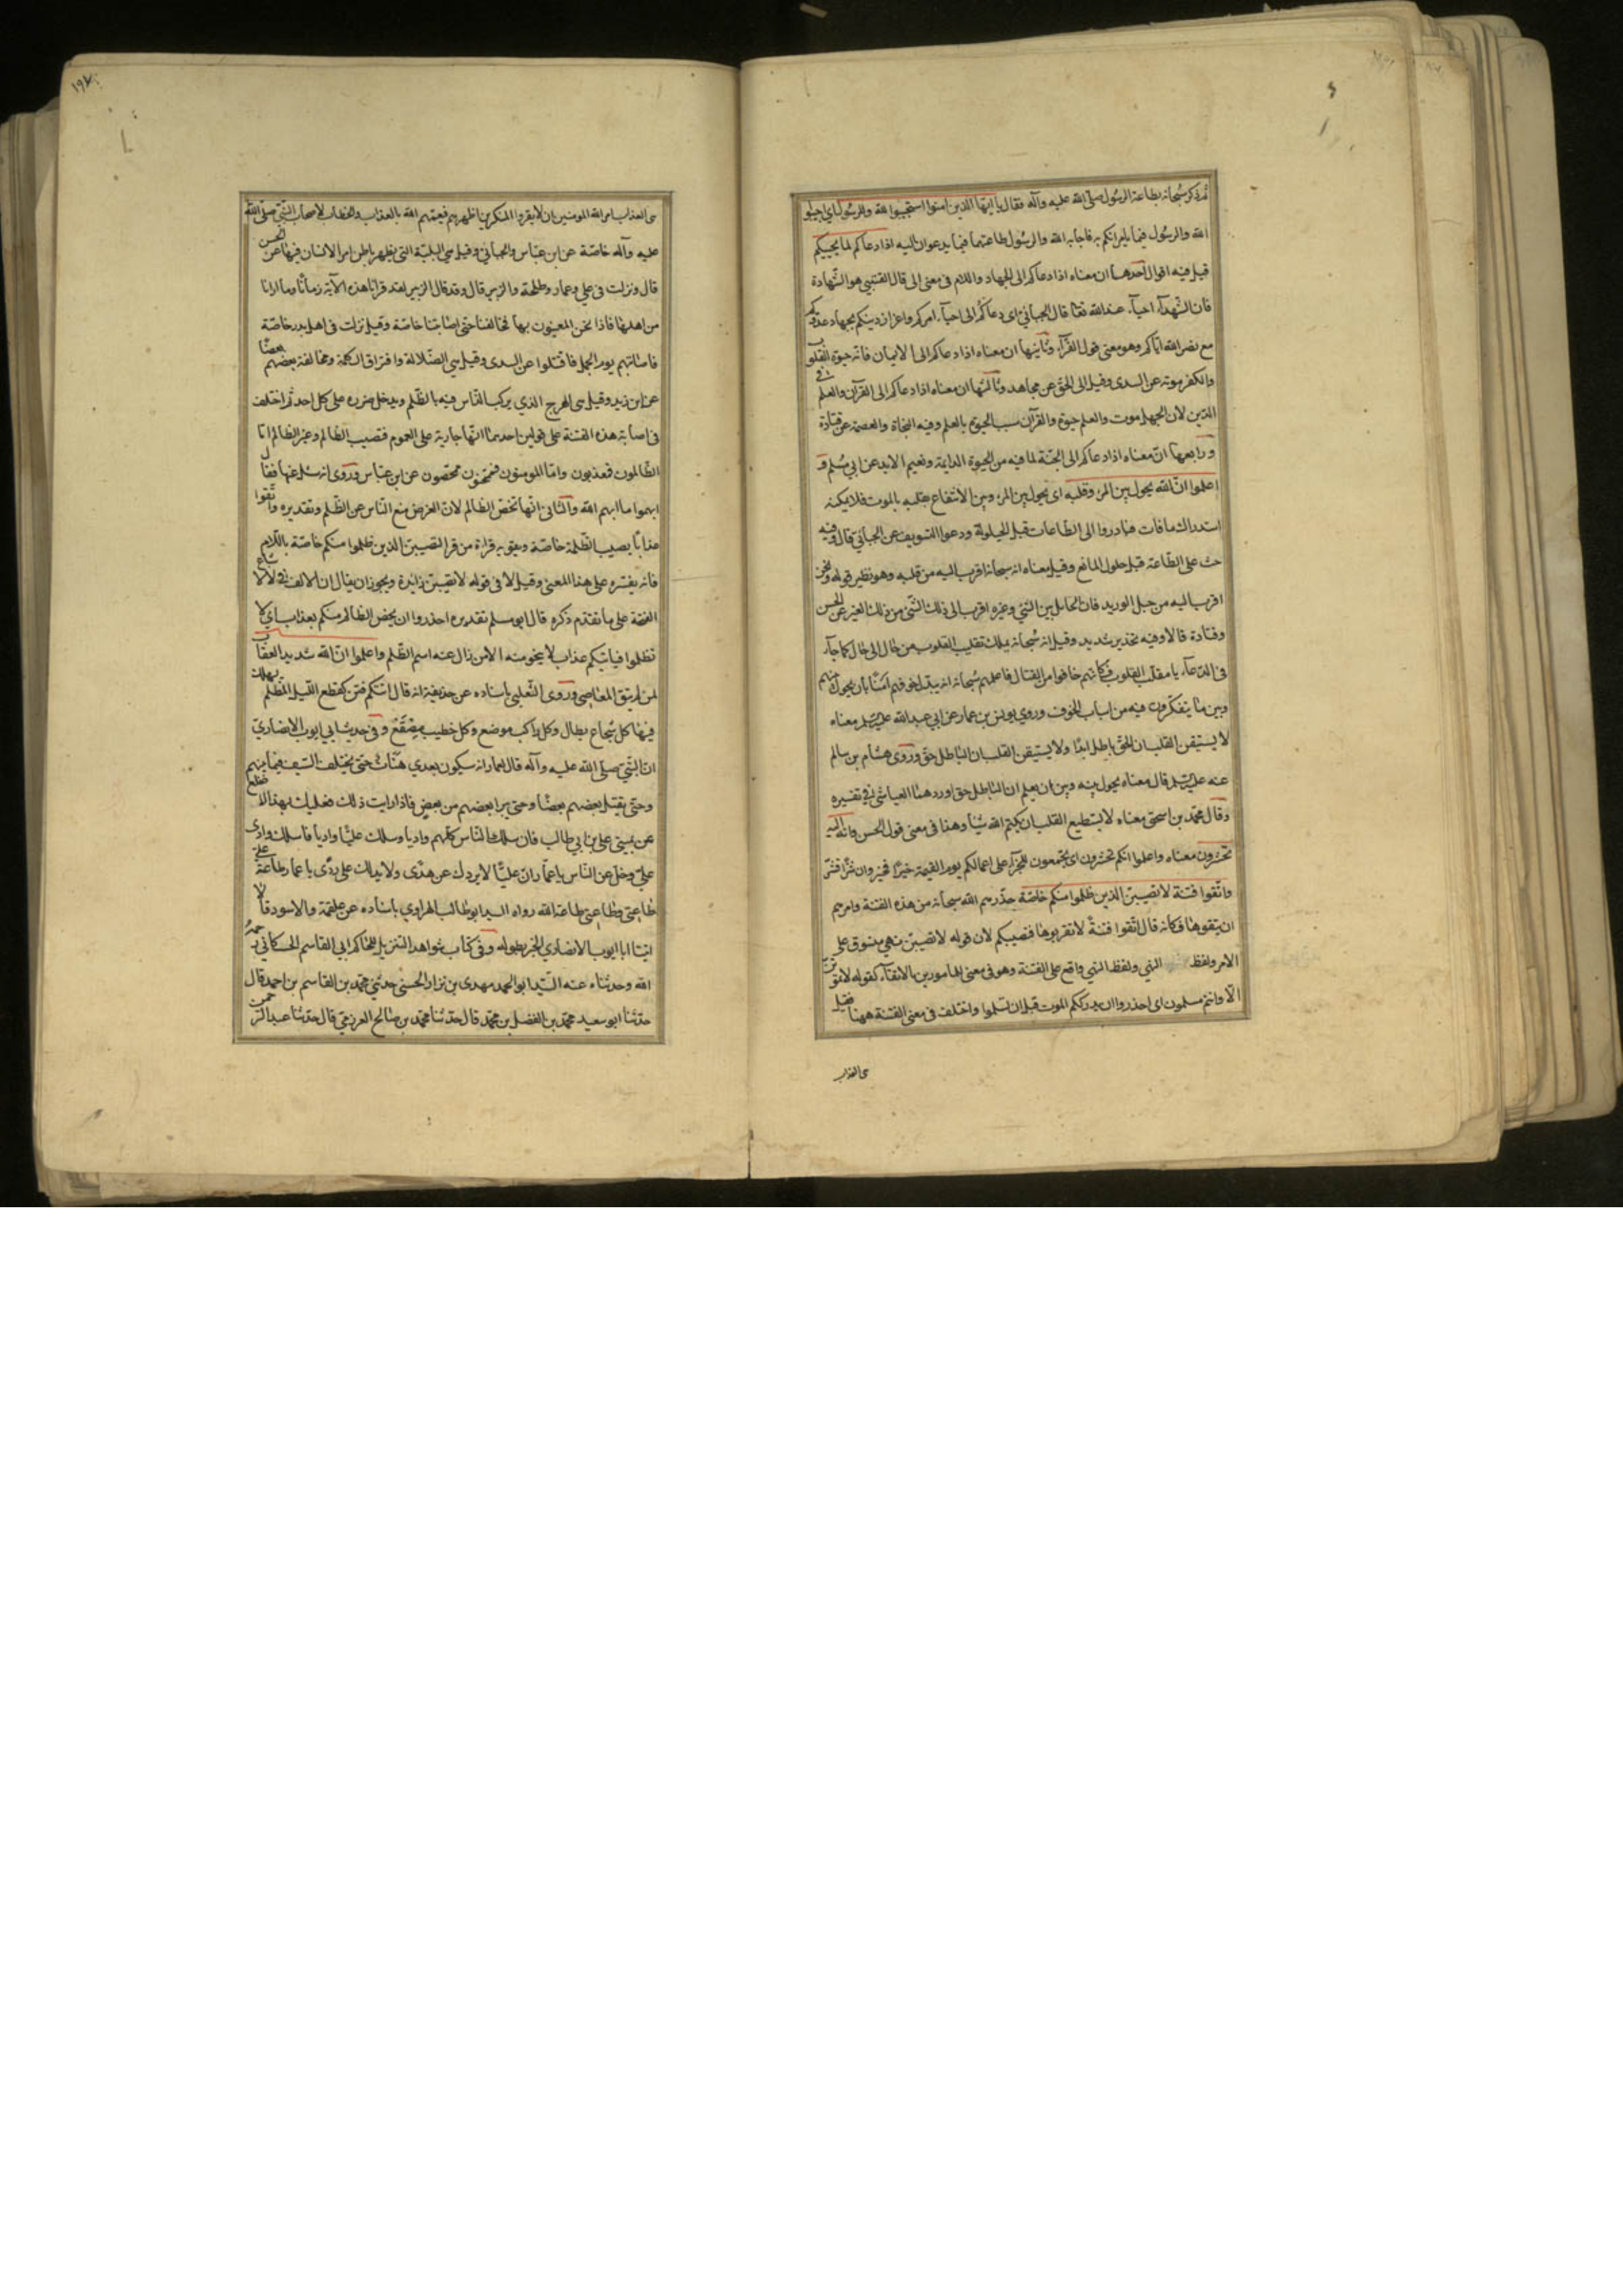 ثم ذكر سبحانه بطاعة الرسول صلى الله عليه وآله فقال يا ايها الذين امنوا استجيبوا لله وللرسول اي اجيبوا
الله والرسول فيما يامرانكم به فاجابه الله والرسول طاعتهما فيما يدعوان اليه اذا دعاكم لما يحييكم
قيل فيه اقوال احدها ان معناه اذا دعاكم الى الجهاد واللام في معنى الى قال القتيبي هو الشهادة
فان الشهداء احياء عند الله تعا قال الجبائي اى دعاكم الى احياء امركم واعزاز دينكم بجهاد عدوكم
مع نصر الله اياكم وهو معنى قول الفراء وثانيها ان معناه اذا دعاكم الى الايمان فانه حيوة القلوب
والكفر موته عن السدى وقيل الى الحق عن مجاهد وثالثها ان معناه اذا دعاكم الى القرآن والعلم في
الدين لان الجهل موت والعلم حيوة والقرآن سبب الحيوة بالعلم وفيه النجاة والعصمة عن قتادة
ورابعها ان معناه اذا دعاكم الى الجنة لما فيه من الحيوة الدايمة ونعيم الابد عن ابي مسلم و
اعلموا ان الله يحول بين المرء وقلبه اى يحول بين المرء وبين الانتفاع بقلبه بالموت فلا يمكنه
استدراك ما فات فبادروا الى الطاعات قبل الحيلولة ودعوا التسويف عن الجبائي قال وفيه
حث على الطاعة قبل حلول المانع وقيل معناه انه سبحانه اقرب اليه من قلبه وهو نظير قوله ونحن
اقرب اليه من حبل الوريد فان الحايل بين الشئ وغيره اقرب الى ذلك الشئ من ذلك الغير عن الحسن
وقتادة قالا وفيه تحذير شديد وقيل انه سبحانه يملك تقليب القلوب من حال الى حال كما جاء
في الدعاء يا مقلب القلوب فكانهم خافوا من القتال فاعلمهم سبحانه انه يبدل خوفهم امنا بان يحول بينهم
وبين ما يتفكرون فيه من اسباب الخوف وروي يونس بن عمار عن ابي عبد الله عليه السلم معناه
لا يستيقن القلب ان الحق باطل ابدا ولا يستيقن القلب ان الباطل حق وروى هشام بن سالم
عنه عليه السلم قال معناه يحول بينه وبين ان يعلم ان الباطل حق اوردهما العياشي في تفسيره
وقال محمد بن اسحق معناه لا يستطيع القلب ان يكتم الله شيأ وهذا في معنى قول الحسن وانه اليه
تحشرون معناه واعلموا انكم تحشرون اى تجتمعون للجزاء على اعمالكم يوم القيمة خيرا فخير وان شرا فشر
واتقوا فتنة لا تصيبن الذين ظلموا منكم خاصة حذرهم الله سبحانه من هذه الفتنة وامرهم
ان يتقوها فكانه قال اتقوا فتنة لا تقربوها فتصيبكم لان قوله لا تصيبن نهي مسوق على
الامر ولفظ النهي ولفظ النهي واقع على الفتنة وهو في معنى المامورين بالاتقاء كقوله لا تموتن
الا وانتم مسلمون اى احذروا ان يدرككم الموت قبل ان تسلموا واختلف في معنى الفتنة ههنا فقيل
هي العذاب
١٩٧
هي العذاب امر الله المومنين ان لا يقروا المنكر بين اظهرهم فيعمهم الله بالعذاب والخطاب لاصحاب النبي صلى الله
عليه وآله خاصة عن ابن عباس والجبائي وقيل هي البلية التي يظهر باطن امر الانسان فيها عن الحسن
قال ونزلت في علي وعمار وطلحة والزبير قال وقد قال الزبير لقد قرانا هذه الآية زمانا وما ارانا
من اهلها فاذا نحن المعنيون بها فخالفنا حتى اصابتنا خاصة وقيل نزلت في اهل بدر خاصة
فاصابتهم يوم الجمل فاقتتلوا عن السدى وقيل هي الضلالة وافتراق الكلمة ومخالفة بعضهم بعضا
عن ابن زيد وقيل هي الهرج الذي يركب الناس فيه بالظلم ويدخل ضرره على كل احد ثم اختلف
في اصابة هذه الفتنة على قولين احدهما انها جارية على العموم فتصيب الظالم وغير الظالم اما
الظالمون فمعذبون واما المومنون فممتحنون ممحصون عن ابن عباس وروى انه سئل عنها فقال
ابهموا ما ابهم الله والثاني انها تخص الظالم لان الغرض منع الناس عن الظلم وتقديره واتقوا
عذابا يصيب الظلمة خاصة ويقويه قراءة من قرا لتصيبن الذين ظلموا منكم خاصة باللام
فانه يفسره على هذا المعنى وقيل لا في قوله لا تصيبن زايدة ويجوز ان يقال ان الالف في لا لاشباع
الفتحة على ما تقدم ذكره قال ابو مسلم تقديره احذروا ان يخص الظالم منكم بعذاب اي لا
تظلموا فياتيكم عذاب لا ينجو منه الا من زال عنه اسم الظلم واعلموا ان الله شديد العقاب
لمن لم يتق المعاصى وروى الثعلبي باسناده عن حذيفة انه قال اتتكم فتن كقطع الليل المظلم يهلك
فيها كل شجاع بطال وكل راكب موضع وكل خطيب مصقع وفي حديث ابي ايوب الانصاري
ان النبي صلى الله عليه وآله قال لعمار انه سيكون بعدي هنات حتى يختلف السيف فيما بينهم
وحتى يقتل بعضهم بعضا وحتى يبرا بعضهم من بعض فاذا رايت ذلك فعليك بهذا الاصلع
عن يميني علي بن ابي طالب فان سلك الناس كلهم واديا وسلك علي واديا فاسلك وادى
علي وخل عن الناس يا عمار ان عليا لا يردك عن هدى ولا يدلك على ردى يا عمار طاعة علي
طاعتي وطاعتي طاعة الله رواه السيد ابو طالب الهراوي باسناده عن علقمة والاسود قالا
اتينا ابا ايوب الانصاري الخبر بطوله وفي كتاب شواهد التنزيل للحاكم ابي القاسم الحسكاني رحمه
الله وحدثناه عنه السيد ابو الحمد مهدى بن نزار الحسني حدثني محمد بن القاسم بن احمد قال
حدثنا ابو سعيد محمد بن الفضل بن محمد قال حدثنا محمد بن صالح العرزمي قال حدثنا عبد الرحمن